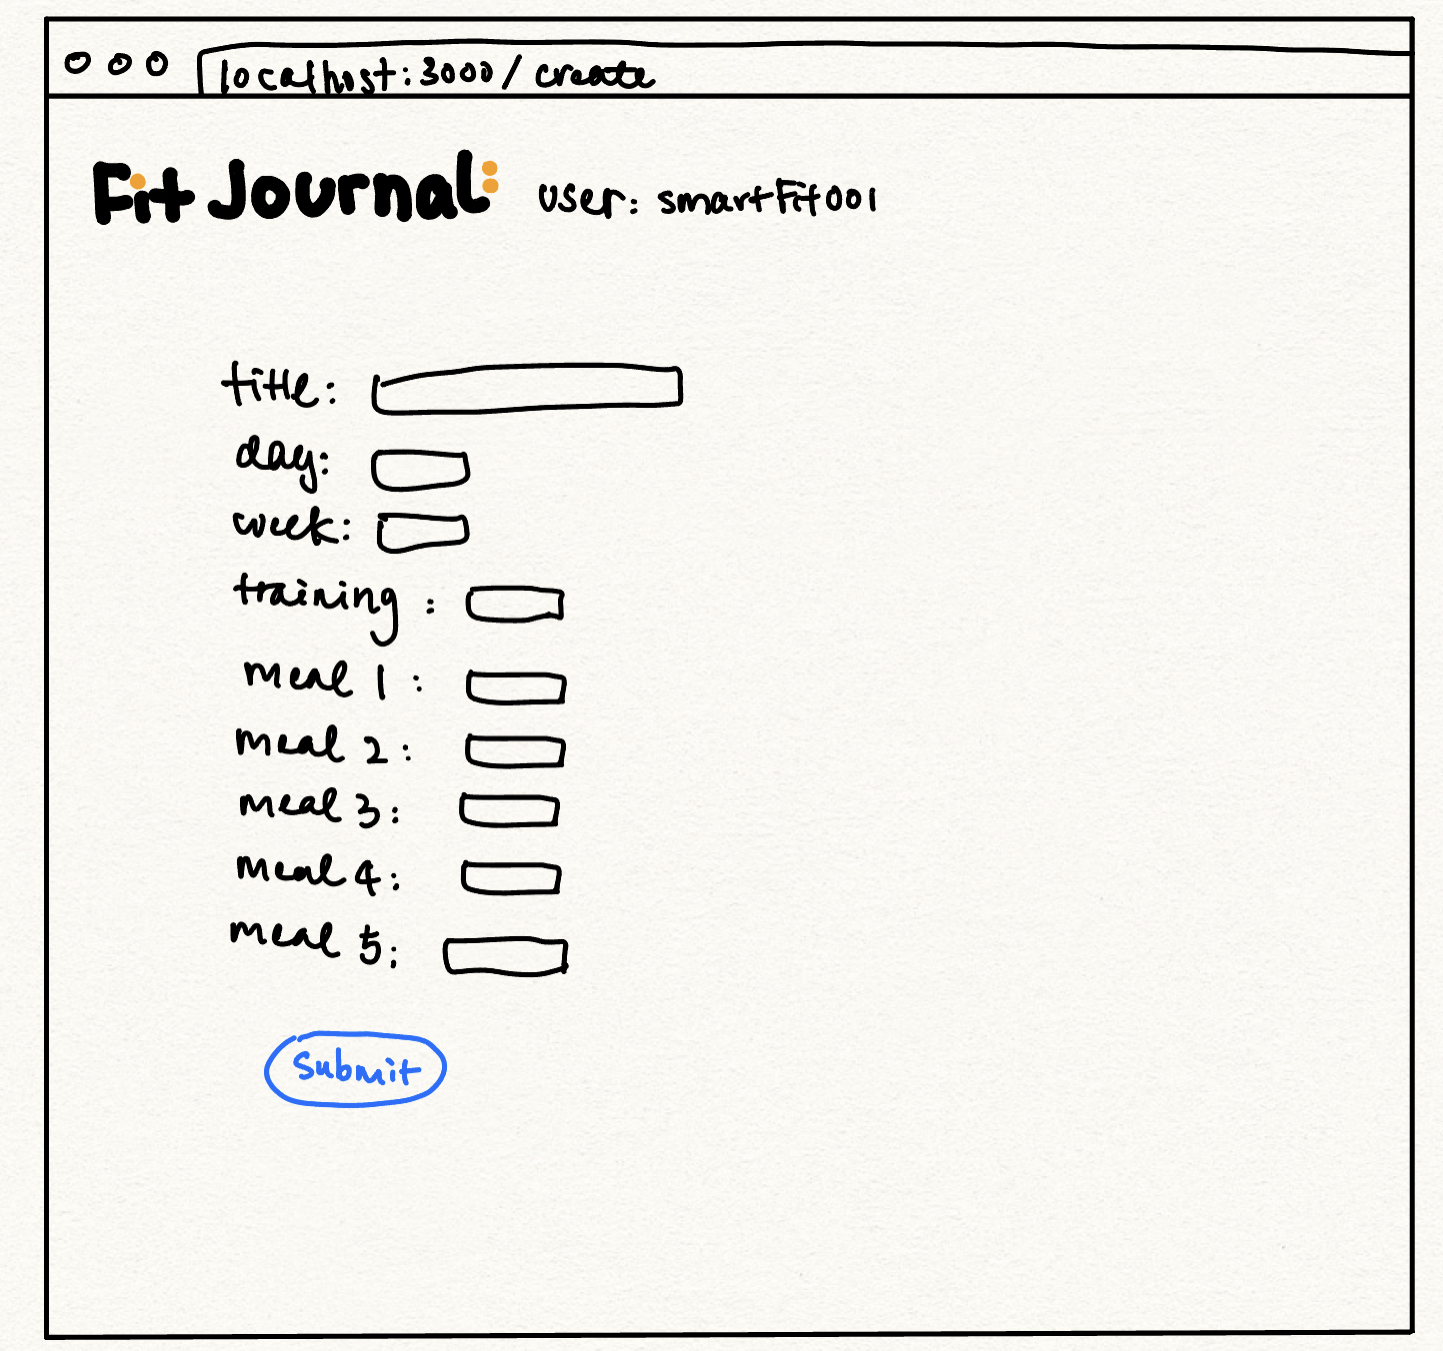 localhost:3000/create
Fit Journal: user: smartFit001
title:
day:
week:
training :
meal 1 :
meal 2 :
meal 3:
meal 4:
meal 5:
Submit